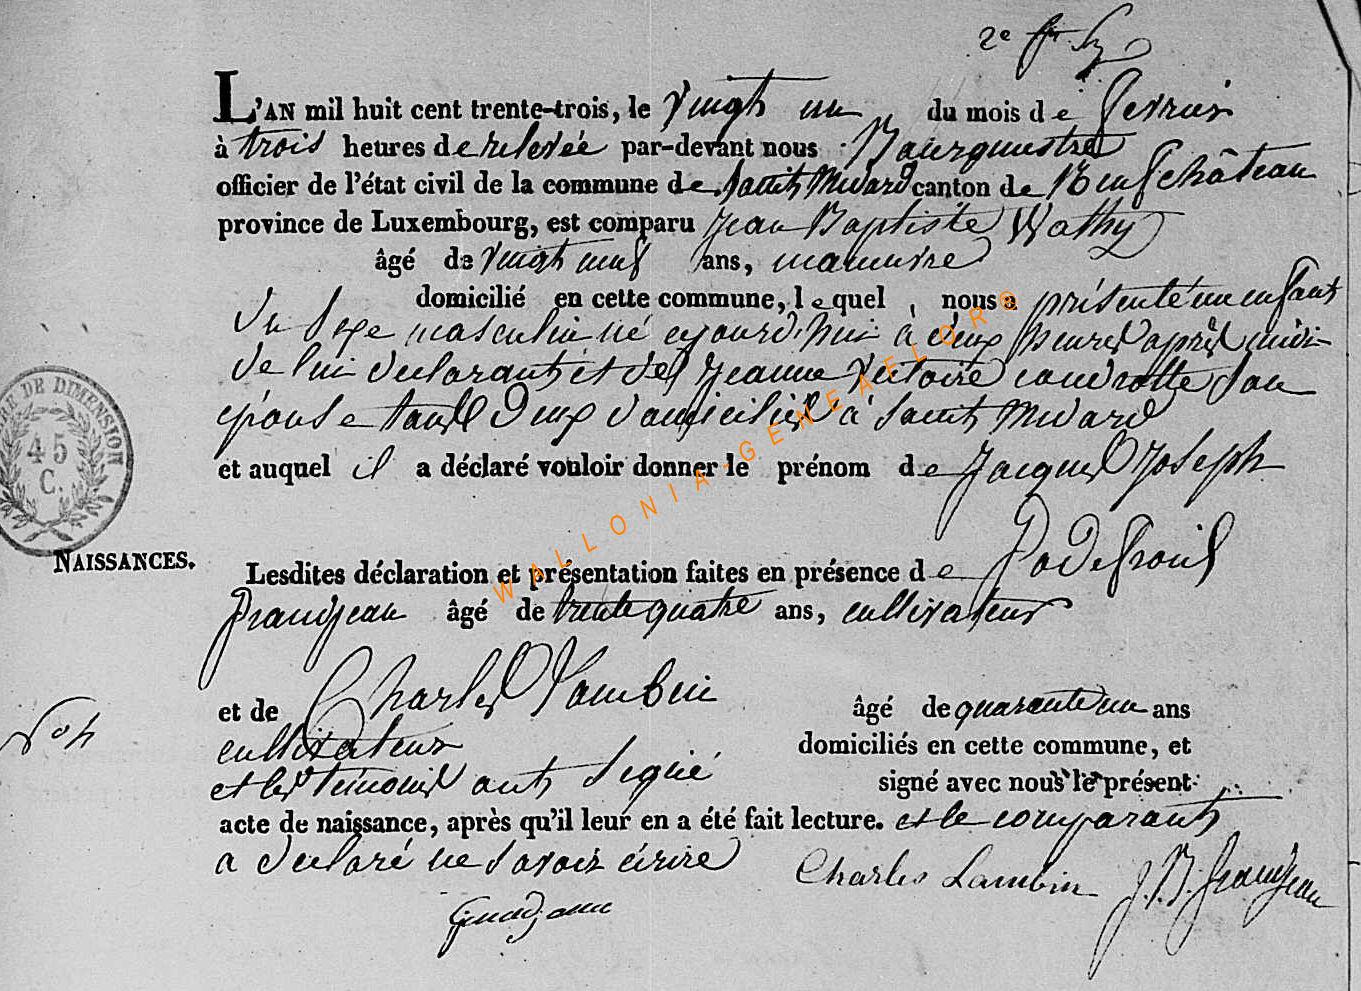 2e
L'AN mil huit cent trente-trois, le vingt un du mois de fevrier
à trois heures de relevée par-devant nous Bourgmestre
officier de l'état civil de la commune de Saint Medard canton de Neufchâteau
province de Luxembourg, est comparu Jean Baptiste Wathy
âgé de vingt neuf ans, manuvre
domicilié en cette commune, lequel nous a présenté un enfant
du sexe masculin né cejourd'hui à deux heures après midi
de lui declarant et de Jeanne Victoire condrotte son
épouse tous deux domiciliés à Saint Medard
et auquel il a déclaré vouloir donner le prénom de Jacques Joseph
NAISSANCES.
Lesdites déclaration et présentation faites en présence de
franjean âgé de trente quatre ans, cultivateur
et de Charles Lambin âgé de quarante un ans
cultivateur domiciliés en cette commune, et
et les temoins ont signé signé avec nous le présent
acte de naissance, après qu'il leur en a été fait lecture. et le comparant
a declaré ne savoir écrire
Charles Lambin J. B. franjean
DE DIMENSION
45
C.
WALLONIA-GENEAFLOR©